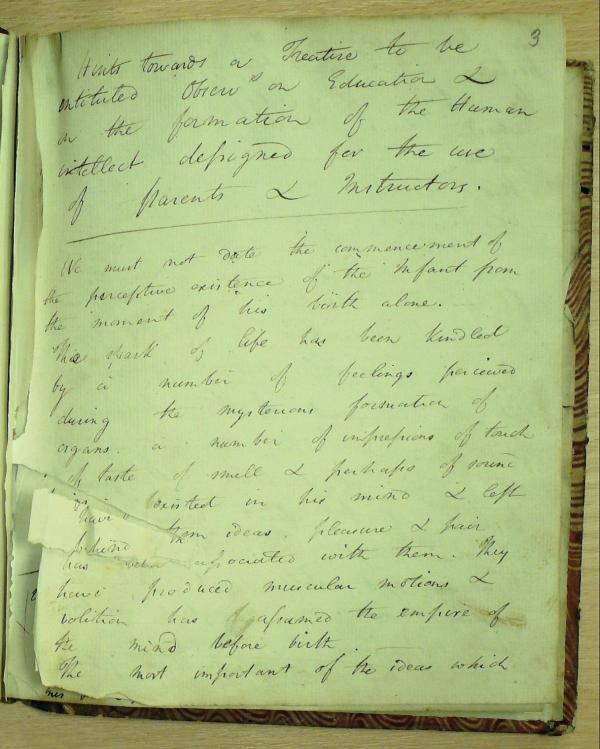 3
Hints towards a Treatise to be
entituted Observns on Education &
on the formation of the Human
intellect designed for the use
of Parents & Instructors.
We must not date the commencement of
the perceptive existence of the Infant from
the moment of his birth alone.
The spark of life has been kindled
by a number of feelings perceived
during the mysterious formation of
organs. a number of impressions of touch
of taste of smell & perhaps of sound
have existed in his mind & left
behind them ideas. pleasure & pain
has been associated with them. They
have produced muscular motions &
volition has assumed the empire of
the mind before birth.
The most important of the ideas which